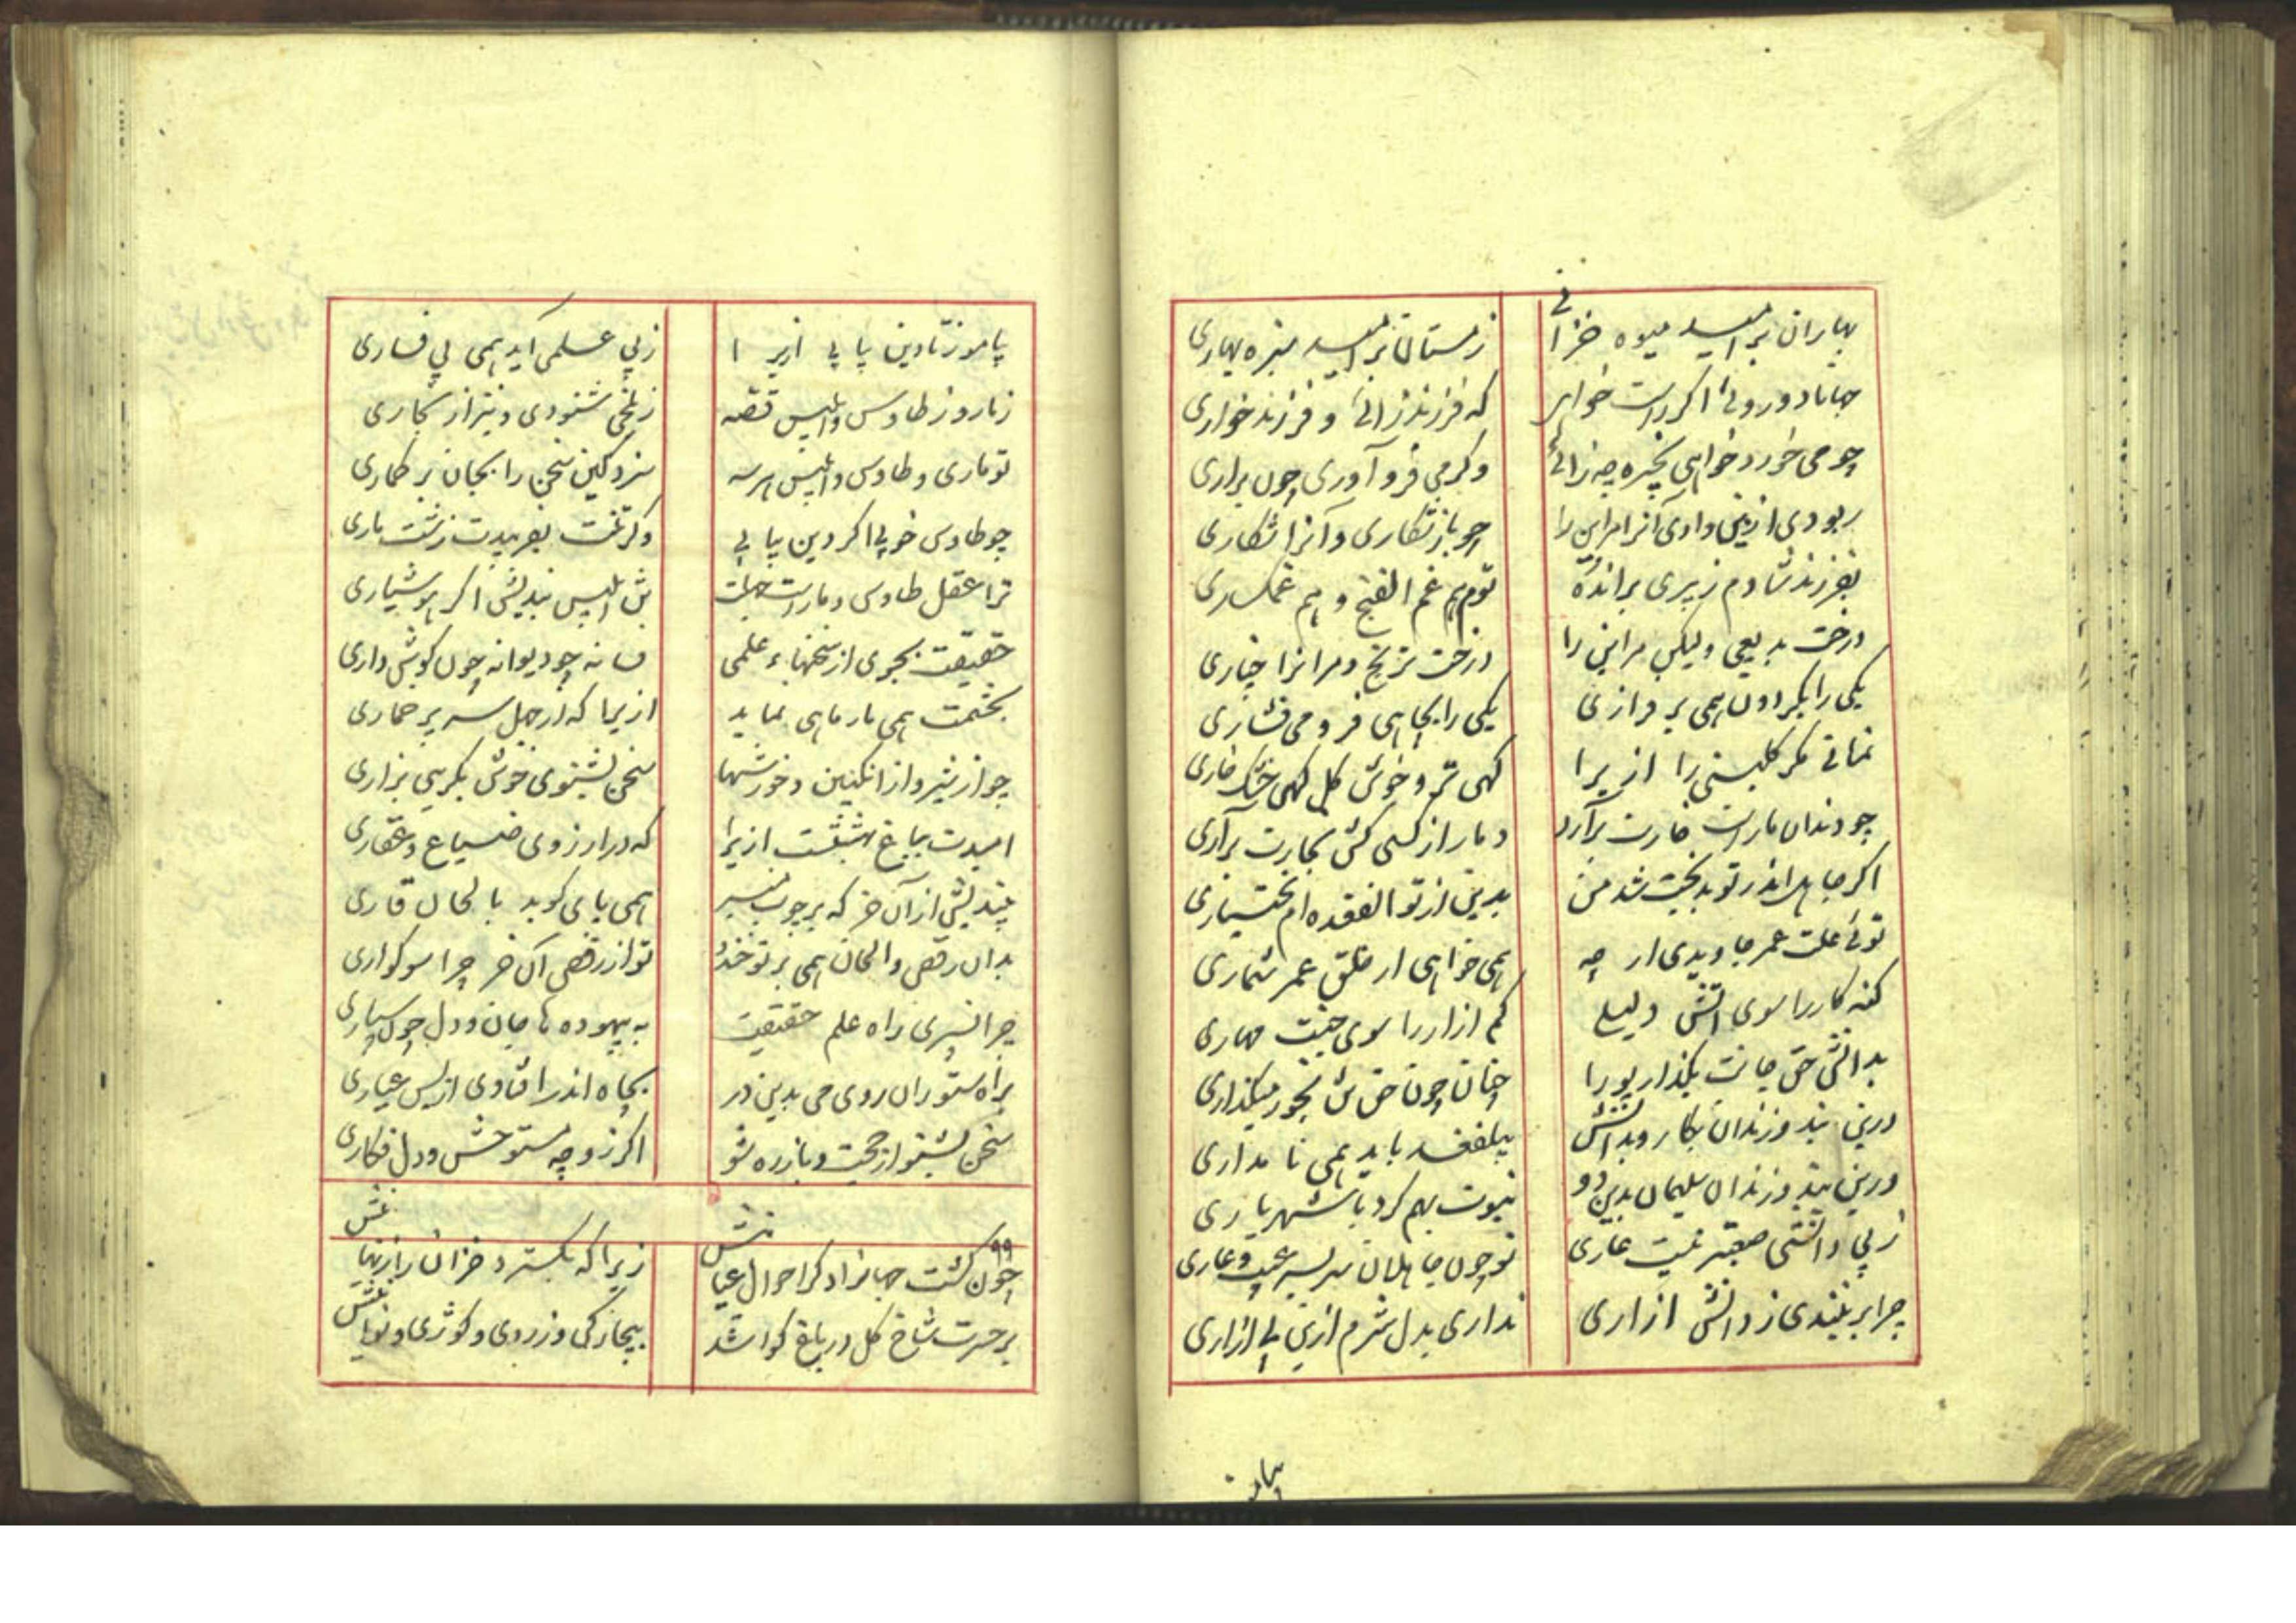 بهاران بر امید میوه خزانی
زمستان بر امید سبزه بهاری
جهانا دو روئی اگر راست خواهی
که فرزند زائی و فرزند خواری
چو می خورد خواهی بخیره چه زائی
وگر می فرو آوری چون براری
ربودی ازین و دادی آنرا مراین را
چو باز شکاری و آنرا شکاری
بفرزند شادم ز پیری براندُه
توم هم غم الفنج و هم غمگساری
درخت بدیعی ولیکن مراین را
درخت ترنج و مرانرا چناری
یکی را بگردون همی بر فرازی
یکی را بچاهی فرو می فشاری
نمانی مگر گلبنی را ازیرا
گهی تر و خوش گل گهی خشک خاری
چو دندان مارست خارت برآرد
دمار از کسی کش بخارت براری
اگر جاهل اندر تو بدبخت شد من
بدین از تو الفقده‌ام بختیاری
توئی علت عمر جاویدی ار چه
همی خواهی از خلق عمر شماری
گنه کار را سوی آتش دلیلی
کم آزار را سوی جنت مهاری
بدانش حق جانت بگذار پورا
چنان چون حق تن بخور میگذاری
درین بند و زندان بکار و بدانش
بیلفغد باید همی نامداری
درین بند و زندان سلیمان بدین دو
نبوت بهم کرد با شهریاری
ز بی دانشی صعبتر نیست عاری
تو چون جاهلان سر بسر عیب و عاری
چرا بر نبندی ز دانش ازاری
نداری بدل شرم ازین بی ازاری
بیا
بیاموز تا دین بیابی ازیرا
ز بی علمی آید همی بی فساری
ز مار و ز طاوس و ابلیس قصه
ز بلخی شنودی و نیز از بخاری
تو ماری و طاوس و ابلیس هرسه
سزد گین سخن را بجان بر گماری
چو طاوس خوبی اگر دین بیابی
وگر تنت بفریبدت زشت ماری
ترا عقل طاوس و مارست جهلت
تن ابلیس بندیش اگر هوشیاری
حقیقت بجوی از سخنهاء علمی
فسانه چو دیوانه چون گوش داری
بچشمت همی مار ماهی نماید
ازیرا که از جهل سر پر خماری
چو از شیر و از انگبین و خورشها
سخن نشنوی خوش بگریی بزاری
امیدت بباغ بهشتست ازیرا
که در ارزوی ضیاع و عقاری
بیندیش از آن خر که بر چوب منبر
همی پای کوبد بالحان قاری
بدان رقص و الحان همی بر تو خندد
تو از رقص آن خر چرا سوگواری
چرا نسپری راه علم حقیقت
به بیهوده ها جان و دل چون سپاری
براه ستوران روی می بدین در
بچاه اندر افتادی از بس عیاری
سخن بشنو از حجت و باز ره شو
اگر زو چه مستوحش و دل فگاری
۹۹
چون گشت جهانرا دگر احوال عیانیش
زیرا که بگسترد خزان راز نهانیش
بر حسرت شاخ گل در باغ گوا شد
بیچارگی و زردی و کوژی و نوانیش